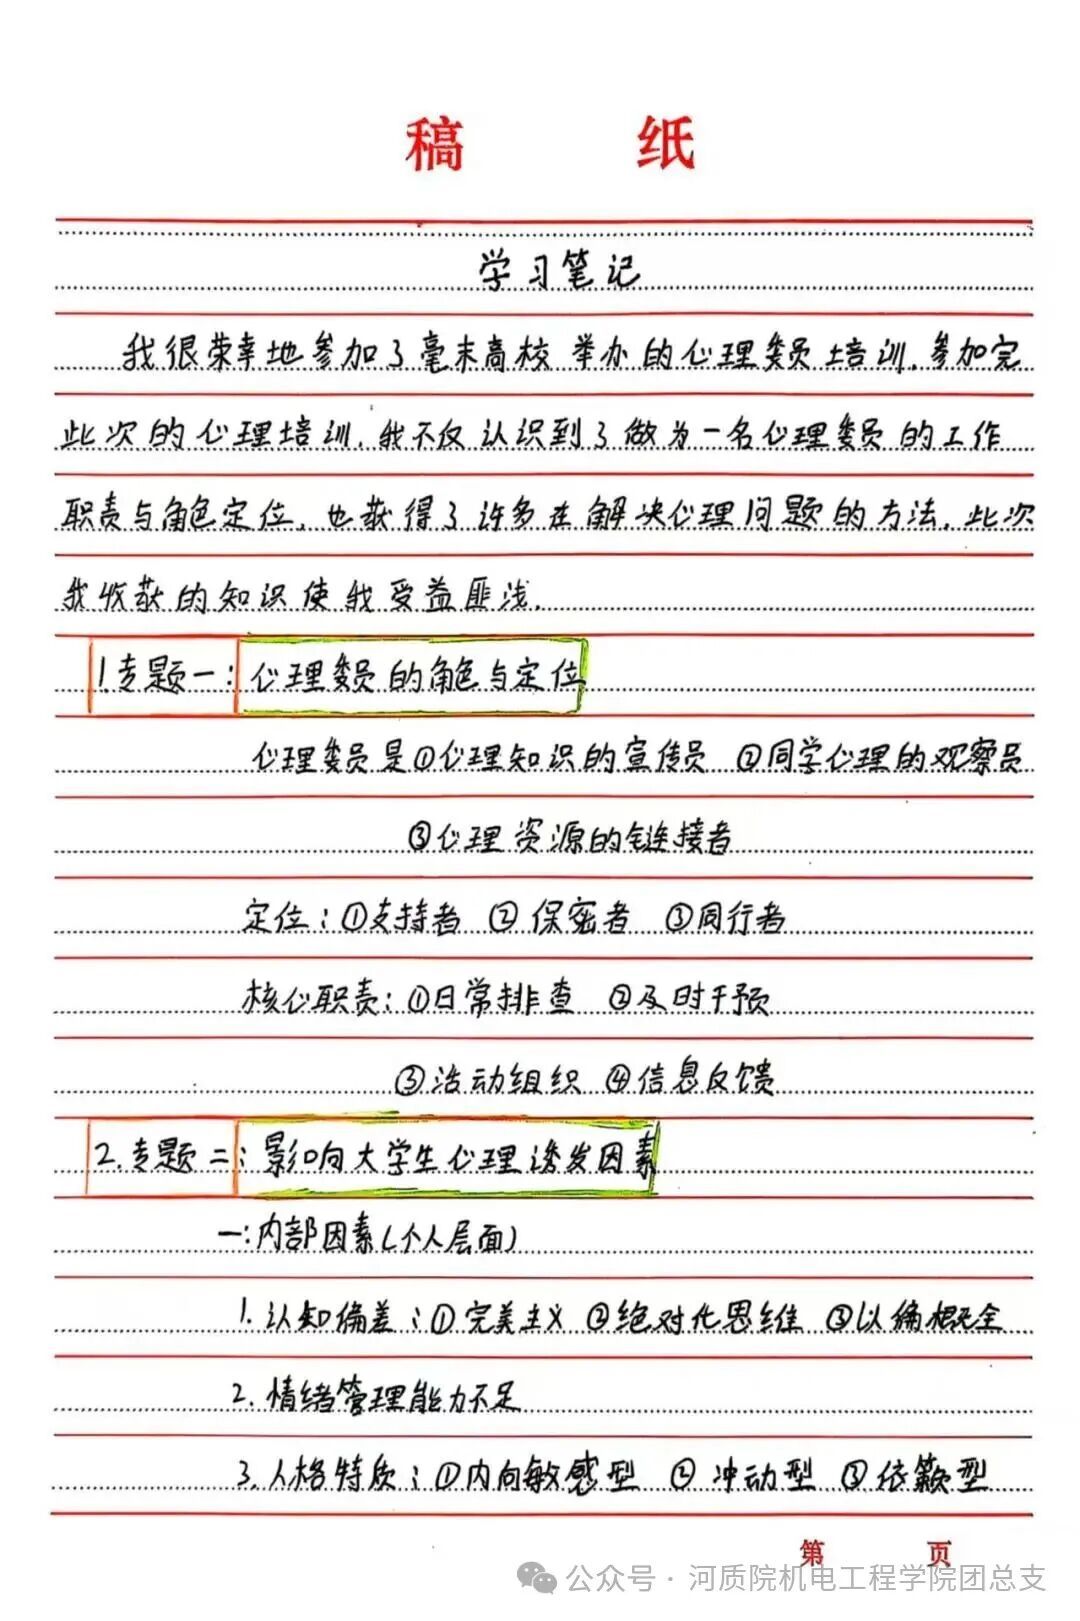 稿 纸
学习笔记
我很荣幸地参加了毫末高校举办的心理委员培训,参加完
此次的心理培训,我不仅认识到了做为一名心理委员的工作
职责与角色定位,也获得了许多在解决心理问题的方法,此次
我收获的知识使我受益匪浅.
1.专题一:心理委员的角色与定位
心理委员是①心理知识的宣传员 ②同学心理的观察员
③心理资源的链接者
定位:①支持者 ②保密者 ③同行者
核心职责:①日常排查 ②及时干预
③活动组织 ④信息反馈
2.专题二:影响大学生心理诱发因素
一:内部因素(个人层面)
1.认知偏差:①完美主义 ②绝对化思维 ③以偏概全
2.情绪管理能力不足
3.人格特质:①内向敏感型 ②冲动型 ③依赖型
第 页
公众号·河质院机电工程学院团总支